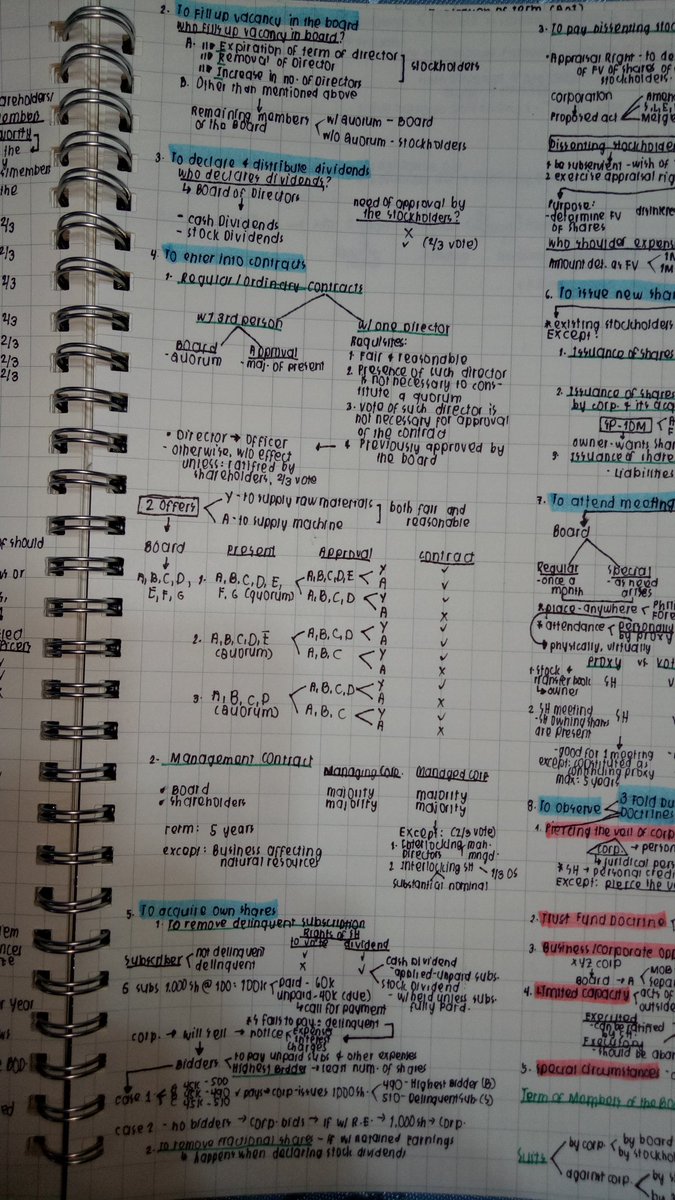 2. To fill up vacancy in the board
Who fills up vacancy in board?
A. Expiration of term of director
Removal of Director
Increase in no. of Directors
stockholders
B. Other than mentioned above
Remaining members of the Board
w/ quorum - Board
w/o quorum - stockholders
3. To declare & distribute dividends
who declares dividends?
↳ Board of Directors
need of approval by the stockholders?
- cash Dividends x
- stock Dividends ✓ (2/3 vote)
4. To enter into contracts
1. Regular/ordinary contracts
w/ 3rd person
w/ one Director
Board
- quorum
Approval
- maj. of present
Requisites:
1. Fair & reasonable
2. Presence of such director
is not necessary to cons-
titute a quorum
3. vote of such director is
not necessary for approval
of the contract
4. Previously approved by
the board
• Director → Officer
- otherwise, w/o effect
unless: ratified by
shareholders, 2/3 vote
2 Offers
Y - to supply raw materials
A - to supply machine
both fair and
reasonable
Board present Approval contract
A, B, C, D,
E, F, G
1. A, B, C, D, E,
F, G (quorum)
A, B, C, D, E Y ✓
A ✓
A, B, C, D Y ✓
A x
2. A, B, C, D, E
(quorum)
A, B, C, D Y ✓
A ✓
A, B, C Y ✓
A x
3. A, B, C, D
(quorum)
A, B, C, D Y ✓
A x
A, B, C Y ✓
A x
2. Management contract
Managing Corp. Managed corp
• Board majority majority
• shareholders majority majority
Term: 5 years
except: Business affecting
natural resources
Except: (2/3 vote)
1. Interlocking man.
Directors mngd.
2 Interlocking SH - 1/3 OS
substantial nominal
5. To acquire own shares
1. To remove delinquent subscription
Rights of SH
to vote dividend
subscriber
not delinquent ✓ ✓
delinquent x ✓
cash Dividend
- applied - unpaid subs.
stock Dividend
- w/held unless subs.
fully paid.
S subs 1,000 sh @ 100: 100k
paid - 60k
unpaid - 40k (due)
↳ call for payment
* S fails to pay = delinquent
corp. → will sell → notice
expense
interest
charges
Bidders
to pay unpaid subs & other expenses
Highest Bidder → least num. of shares
case 1
A 45k - 500
B 45K - 490
C 45K - 510
pays → corp - issues 1000 sh.
490 - Highest Bidder (B)
510 - Delinquent sub (S)
case 2 - no bidders → corp. bids → if w/ R.E. → 1,000 sh → corp.
2. To remove fractional shares - if w/ retained earnings
↳ happens when declaring stock dividends
3. To pay Dissenting
• Appraisal Right - to
of FV of shares of
stockholders.
corporation
Proposed act
Dissenting stockholder
1 be subservient - wish of
2 exercise appraisal
Purpose:
- determine FV
of shares
who shoulder
Amount det. as FV
6. To issue new
* existing stockholders
Except:
1. Issuance of shares
2. Issuance of shares
by corp. & its
SP - 10M
owner - wants
3. Issuance of
- Liabilities
7. To attend
Board
Regular
- once a
month
special
- as need
arises
* place - anywhere
* attendance
personally
by proxy
→ physically, virtually
proxy vs
1 stock &
transfer book SH
↳ owner
2. SH meeting SH
- SH owning shares
are present
- good for 1 meeting
except: constituted as
continuing proxy
max: 5 years
8. To observe
3 Fold
Doctrines
1. Piercing the veil of
corp.
↳ juridical
* SH → personal
Except: pierce the
2. Trust Fund Doctrine
3. Business/corporate
XYZ corp
Board → A
4. Limited capacity
acts of
outside
Executed
- can be ratified
by SH.
Executory
- should be
5. special circumstances
Term of Members of the
Suits
by corp.
by board
against corp.
2/3
2/3
2/3
2/3
2/3
2/3